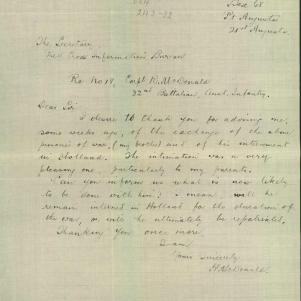 Box 68
Pt Augusta
21st August
The Secretary
Red Cross Information Bureau
Re No 18, Corpl R. McDonald
32nd Battalion, Aust. Infantry.
Dear Sir
I desire to thank you for advising me,
some weeks ago, of the exchange of the above
prisoner of war, (my brother) and of his internment
in Holland. The intimation was a very
pleasing one, particularly to my parents.
Can you inform us what is now likely
to be done with him; I mean, will he
remain interned in Holland for the duration of
the war, or will he ultimately be repatriated.
Thanking you once more,
I am
Yours sincerely
H McDonald